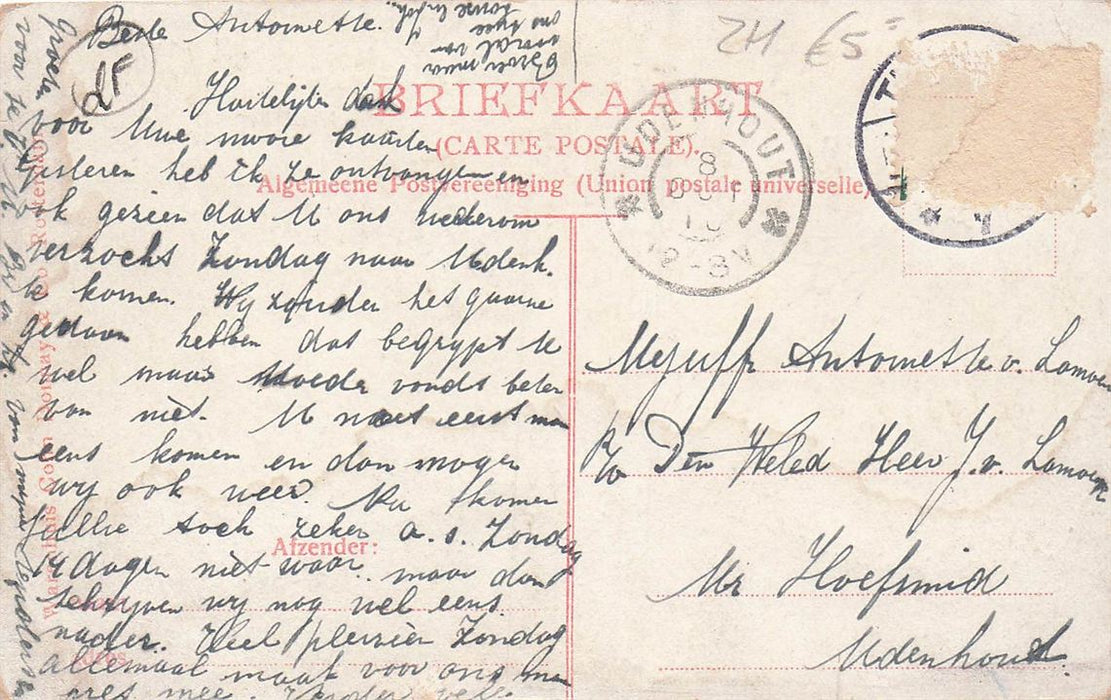 Beste Antoinette.
Hartelijke dank
voor Uwe mooie kaarten
gisteren heb ik ze ontvangen en
ook gezien dat U ons wederom
verzocht Zondag naar Udenh.
te komen. Wy zouden het gaarne
gedaan hebben dat begrypt U
wel maar Moeder vondt beter
van niet. U moet eerst maar
eens komen en dan mogen
wy ook weer. Nu komen
jullie toch zeker a.s. Zondag
14 dagen niet waar. maar dan
schryven wy nog wel eens
nader. Veel plezier Zondag
allemaal maak voor ons maar
pret mee.
Groeten
voor
BRIEFKAART
(CARTE POSTALE).
Algemeene Postvereeniging (Union postale universelle)
UDENHOUT
8
OCT
10
12-3V
ZH €5
Afzender:
Mejuffr Antoinette v. Lamoen
p/o Den Weled Heer J. v. Lamoen
Mr Hoefsmid
Udenhout.